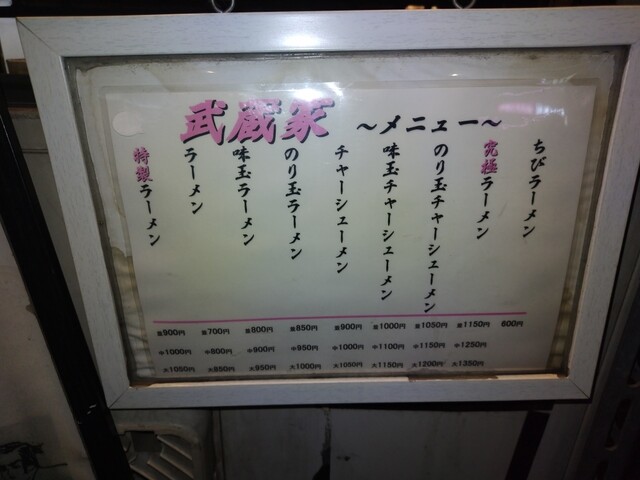 武蔵家 ～メニュー～
ちびラーメン
究極ラーメン
のり玉チャーシューメン
味玉チャーシューメン
チャーシューメン
のり玉ラーメン
味玉ラーメン
ラーメン
特製ラーメン
並900円 並700円 並800円 並850円 並900円 並1000円 並1050円 並1150円 600円
中1000円 中800円 中900円 中950円 中1000円 中1100円 中1150円 中1250円
大1050円 大850円 大950円 大1000円 大1050円 大1150円 大1200円 大1350円